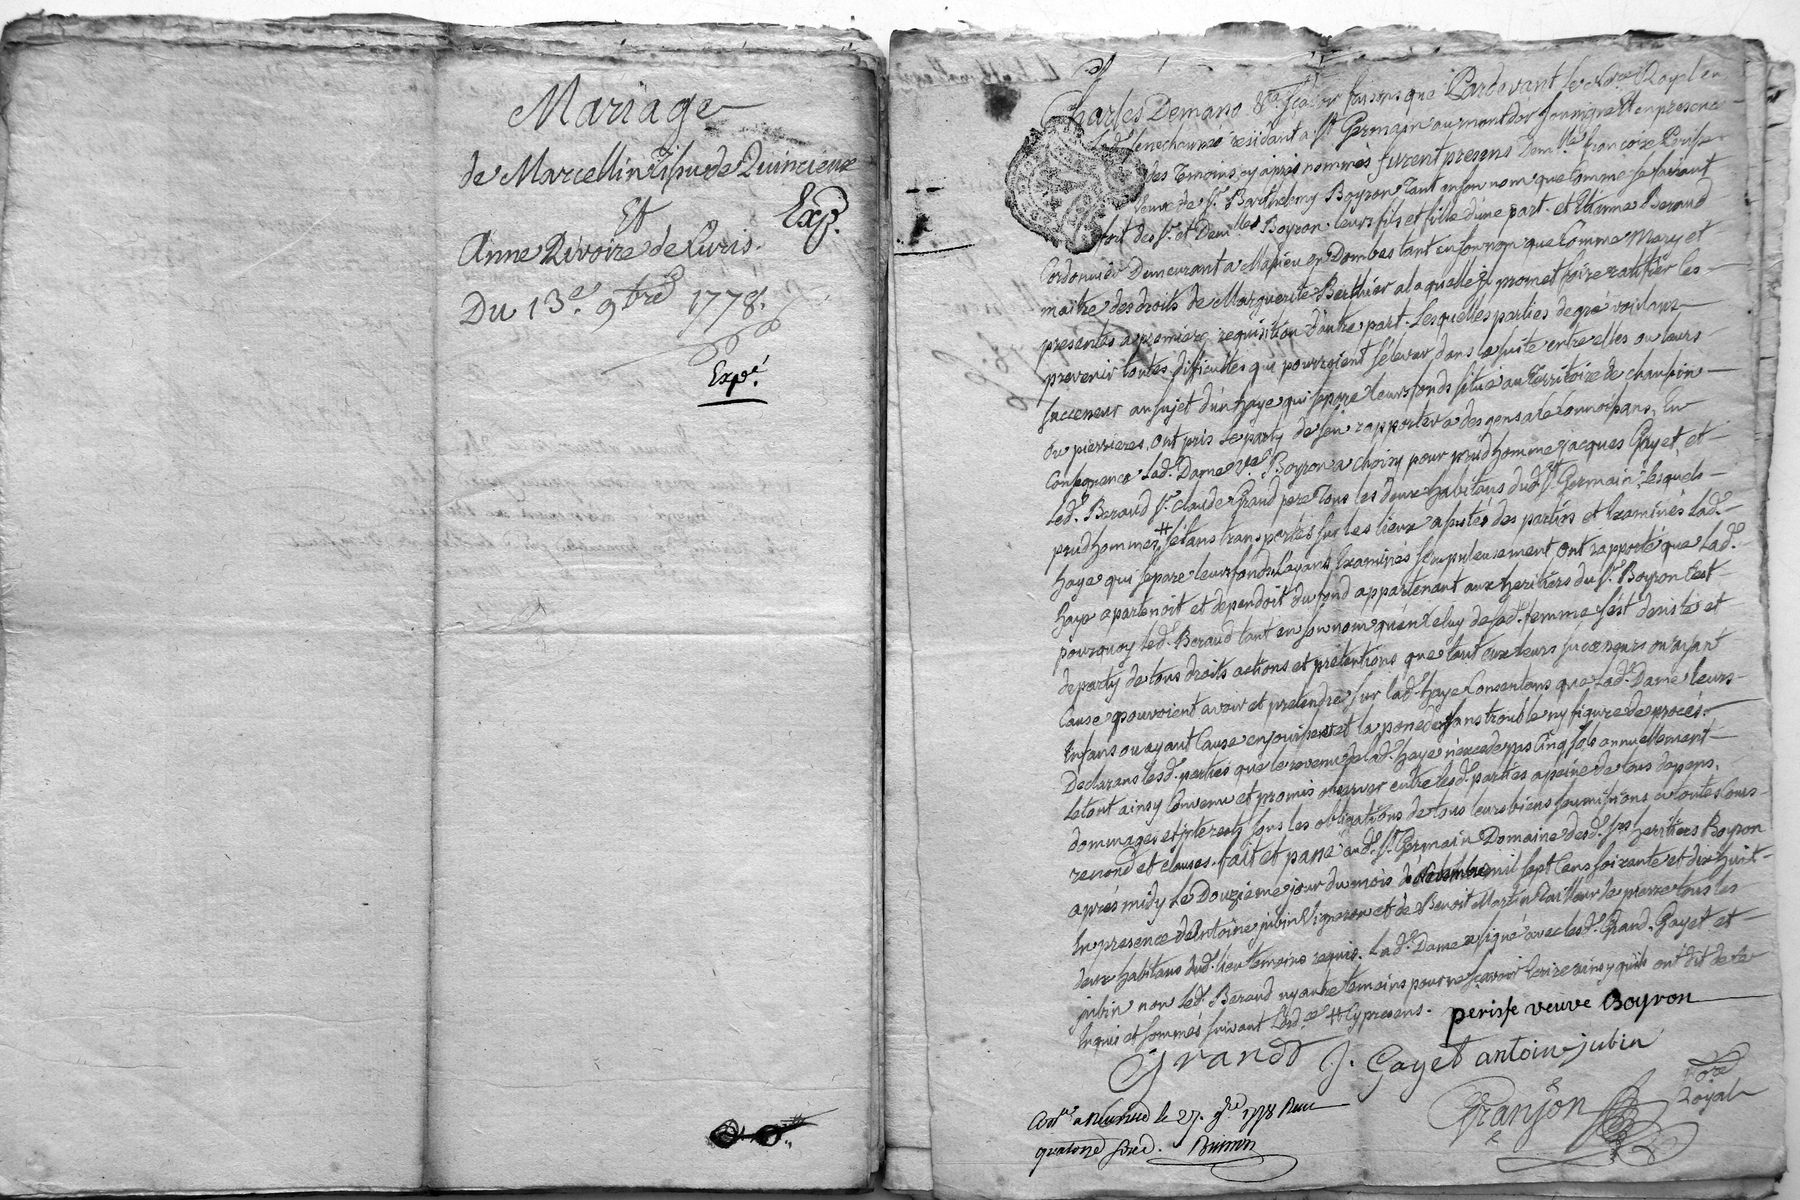 Mariage
de Marcellin de Quincieux
Et
Anne Rivoire de Curis.
Exp.
Du 13e. 9bre 1778.
Expé.
Charles Demano faisons que Pardevant le Nore Royal en
Senechaussé residant a St Germain au mont dor soussigné Et en presence
des Temoins cy après nommés furent presens Demlle françoise Perisse
Veuve de Sr. Barthelemy Boyron Tant en son nom que Comme se faisant
fort des Srs et Demlles Boyron leurs fils et fille d'une part. et Etienne Beraud
Cordonnier Demeurant a en Dombes tant en son nom que Comme Mary et
maitre des droits de Marguerite Berthier a laquelle il promet faire ratifier les
presentes a premiere requisition d'autre part. Lesquelles parties de gré voulans
prevenir toutes difficultés qui pourroient s'élever dans la suite entre elles ou leurs
successeur au sujet d'un haye qui separe leurs fonds situé au Territoire de
ou pierrieres, ont pris le party de s'en rapporter a des gens a ce connoissans, En
Consequence Lad. Dame vve Boyron a choisy pour prudhomme jacques Gayet, et
led. Beraud Sr. claude Grand pere Tous les deux habitans dud. St Germain, lesquels
prudhommes # s'étans transportés sur les lieux assistés des parties et Examinés Lad.
haye qui separe leurs fonds L'ayant Examinés scrupuleusement ont rapporté que Lad.
haye apartenoit et dependoit du fond appartenant aux heritiers du Sr. Boyron C'est
pourquoy led. Beraud tant en son nom qu'en Celuy de sad. femme s'est desisté et
departy de tous droits actions et prétentions que tant eux leurs successeurs ou ayant
Cause pouvoient avoir et pretendre sur lad. haye Consentans que Lad. Dame leurs
Enfans ou ayant Cause en jouissent et la possedent sans trouble ny figure de procés.
Declarans lesd. parties que le revenu de lad. haye n'excede pas Cinq sols annuellement
Le tout ainsy Convenu et promis observer entre lesd. parties a peine de tous depens,
dommages et interests sous les obligations de tous leurs biens soumissions a toutes Cours
renond et clauses. fait et passé aud. St Germain Domaine desd. Srs heritiers Boyron
après midy Le Douzieme jour du mois de mil sept Cens soixante et dix huit
En presence de Antoine jubin Vigneron et de Benoit Martin Tailleur de pierre tous les
deux habitans dud. lieu temoins requis. Lad. Dame a signé avec lesd. Grand, Gayet et
jubin non led. Beraud ny autre temoins pour ne sçavoir Ecrire ainsy qu'ils ont dit de ce
Enquis et sommés suivant L'ord.ce # Cy presens.
perisse veuve Boyron
Grand J. Gayet antoin jubin
Granjon nore Royal
Con.lé a le 27. 9bre 1778 Reçu
quatorse sols.